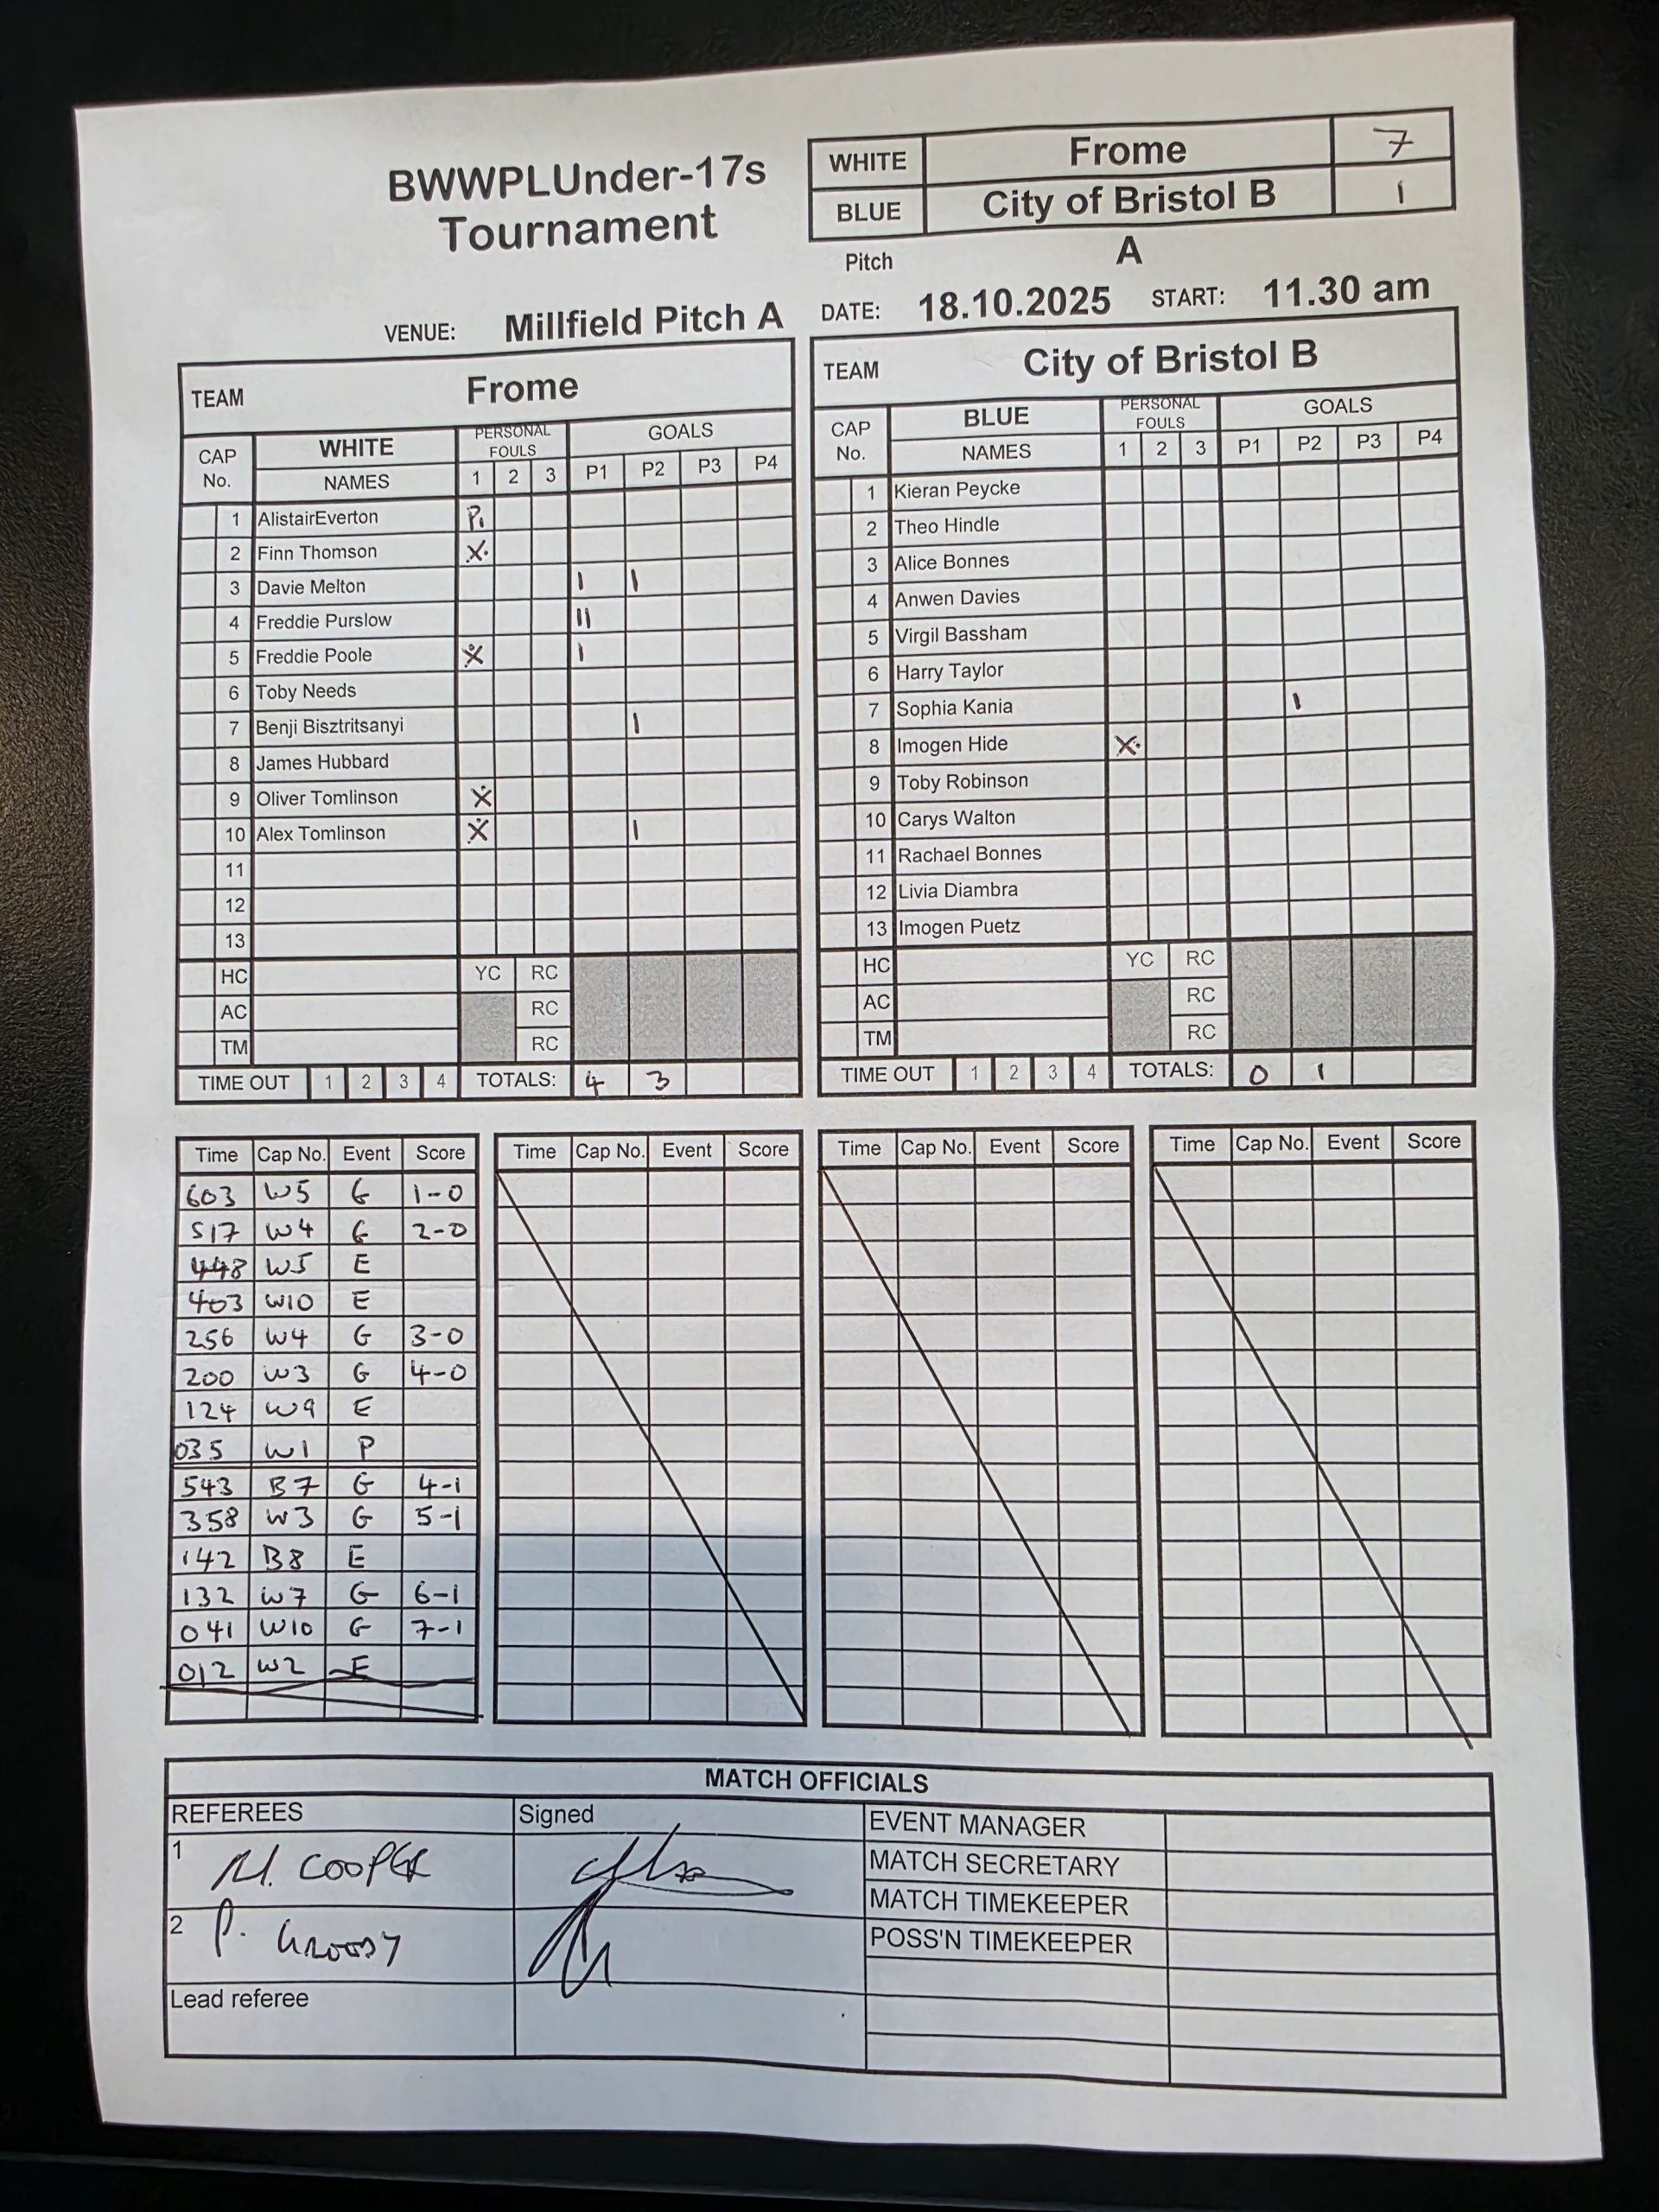 BWWPLUnder-17s
Tournament
WHITE Frome 7
BLUE City of Bristol B 1
Pitch A
VENUE: Millfield Pitch A DATE: 18.10.2025 START: 11.30 am
TEAM Frome
CAP No. WHITE NAMES PERSONAL FOULS 1 2 3 GOALS P1 P2 P3 P4
1 AlistairEverton P1
2 Finn Thomson X
3 Davie Melton I I
4 Freddie Purslow II
5 Freddie Poole X I
6 Toby Needs
7 Benji Bisztritsanyi I
8 James Hubbard
9 Oliver Tomlinson X
10 Alex Tomlinson X I
11
12
13
HC YC RC
AC RC
TM RC
TIME OUT 1 2 3 4 TOTALS: 4 3
TEAM City of Bristol B
CAP No. BLUE NAMES PERSONAL FOULS 1 2 3 GOALS P1 P2 P3 P4
1 Kieran Peycke
2 Theo Hindle
3 Alice Bonnes
4 Anwen Davies
5 Virgil Bassham
6 Harry Taylor
7 Sophia Kania I
8 Imogen Hide X
9 Toby Robinson
10 Carys Walton
11 Rachael Bonnes
12 Livia Diambra
13 Imogen Puetz
HC YC RC
AC RC
TM RC
TIME OUT 1 2 3 4 TOTALS: 0 1
Time Cap No. Event Score
603 W5 G 1-0
517 W4 G 2-0
448 W5 E
403 W10 E
256 W4 G 3-0
200 W3 G 4-0
124 W9 E
035 W1 P
543 B7 G 4-1
358 W3 G 5-1
142 B8 E
132 W7 G 6-1
041 W10 G 7-1
012 W2 E
Time Cap No. Event Score
Time Cap No. Event Score
Time Cap No. Event Score
MATCH OFFICIALS
REFEREES Signed
1 M. COOPER
2 P.
Lead referee
EVENT MANAGER
MATCH SECRETARY
MATCH TIMEKEEPER
POSS'N TIMEKEEPER